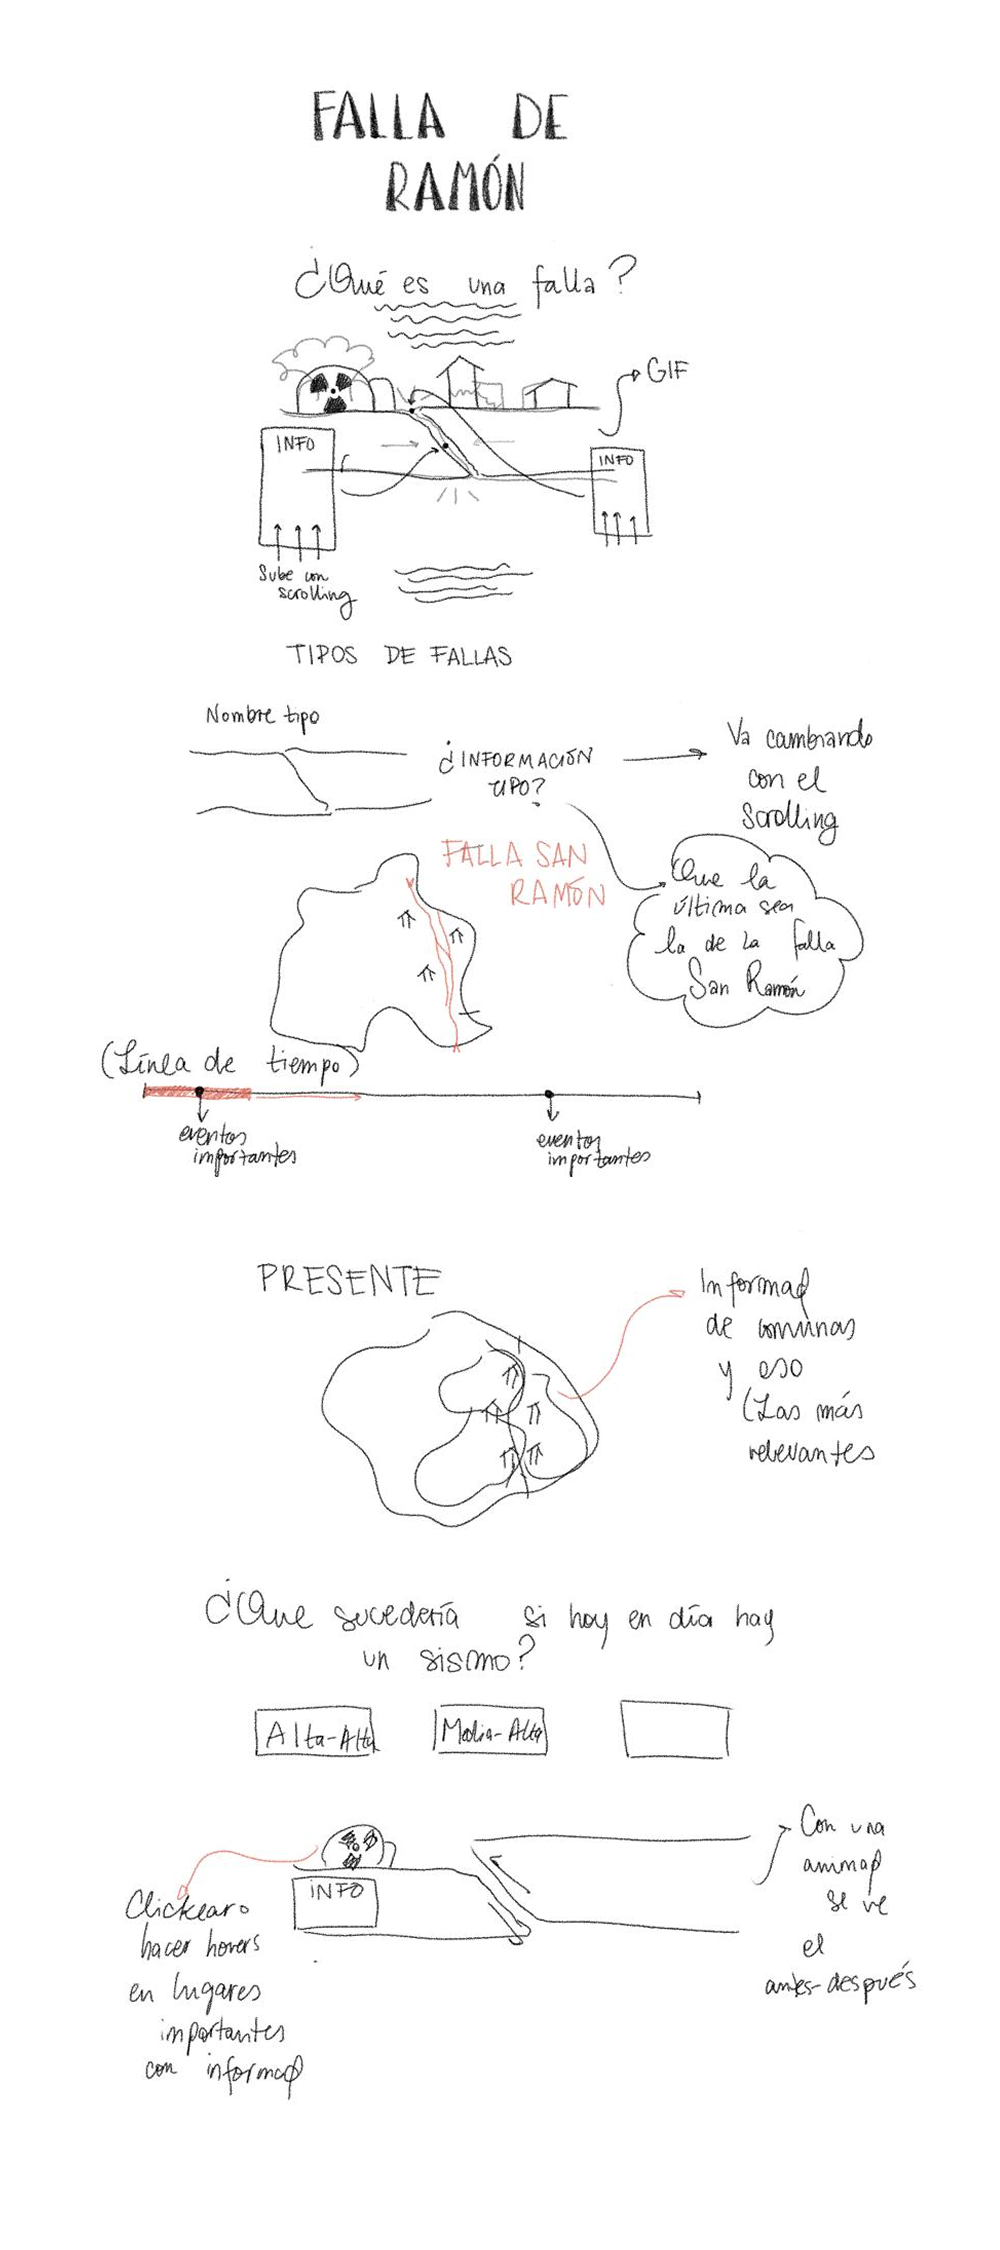 FALLA DE
RAMÓN
¿Qué es una falla?
GIF
INFO
INFO
Sube con
scrolling
TIPOS DE FALLAS
Nombre tipo
¿INFORMACIÓN
TIPO?
Va cambiando
con el
Scrolling
FALLA SAN
RAMÓN
Que la
última sea
la de la falla
San Ramón
(Línea de tiempo)
eventos
importantes
eventos
importantes
PRESENTE
Informaφ
de comunas
y eso
(Las más
relevantes
¿Que sucedería si hoy en día hay
un sismo?
Alta-Alta
Media-Alta
Con una
animaφ
se ve
el
antes-después
INFO
Clickear o
hacer hovers
en lugares
importantes
con informaφ